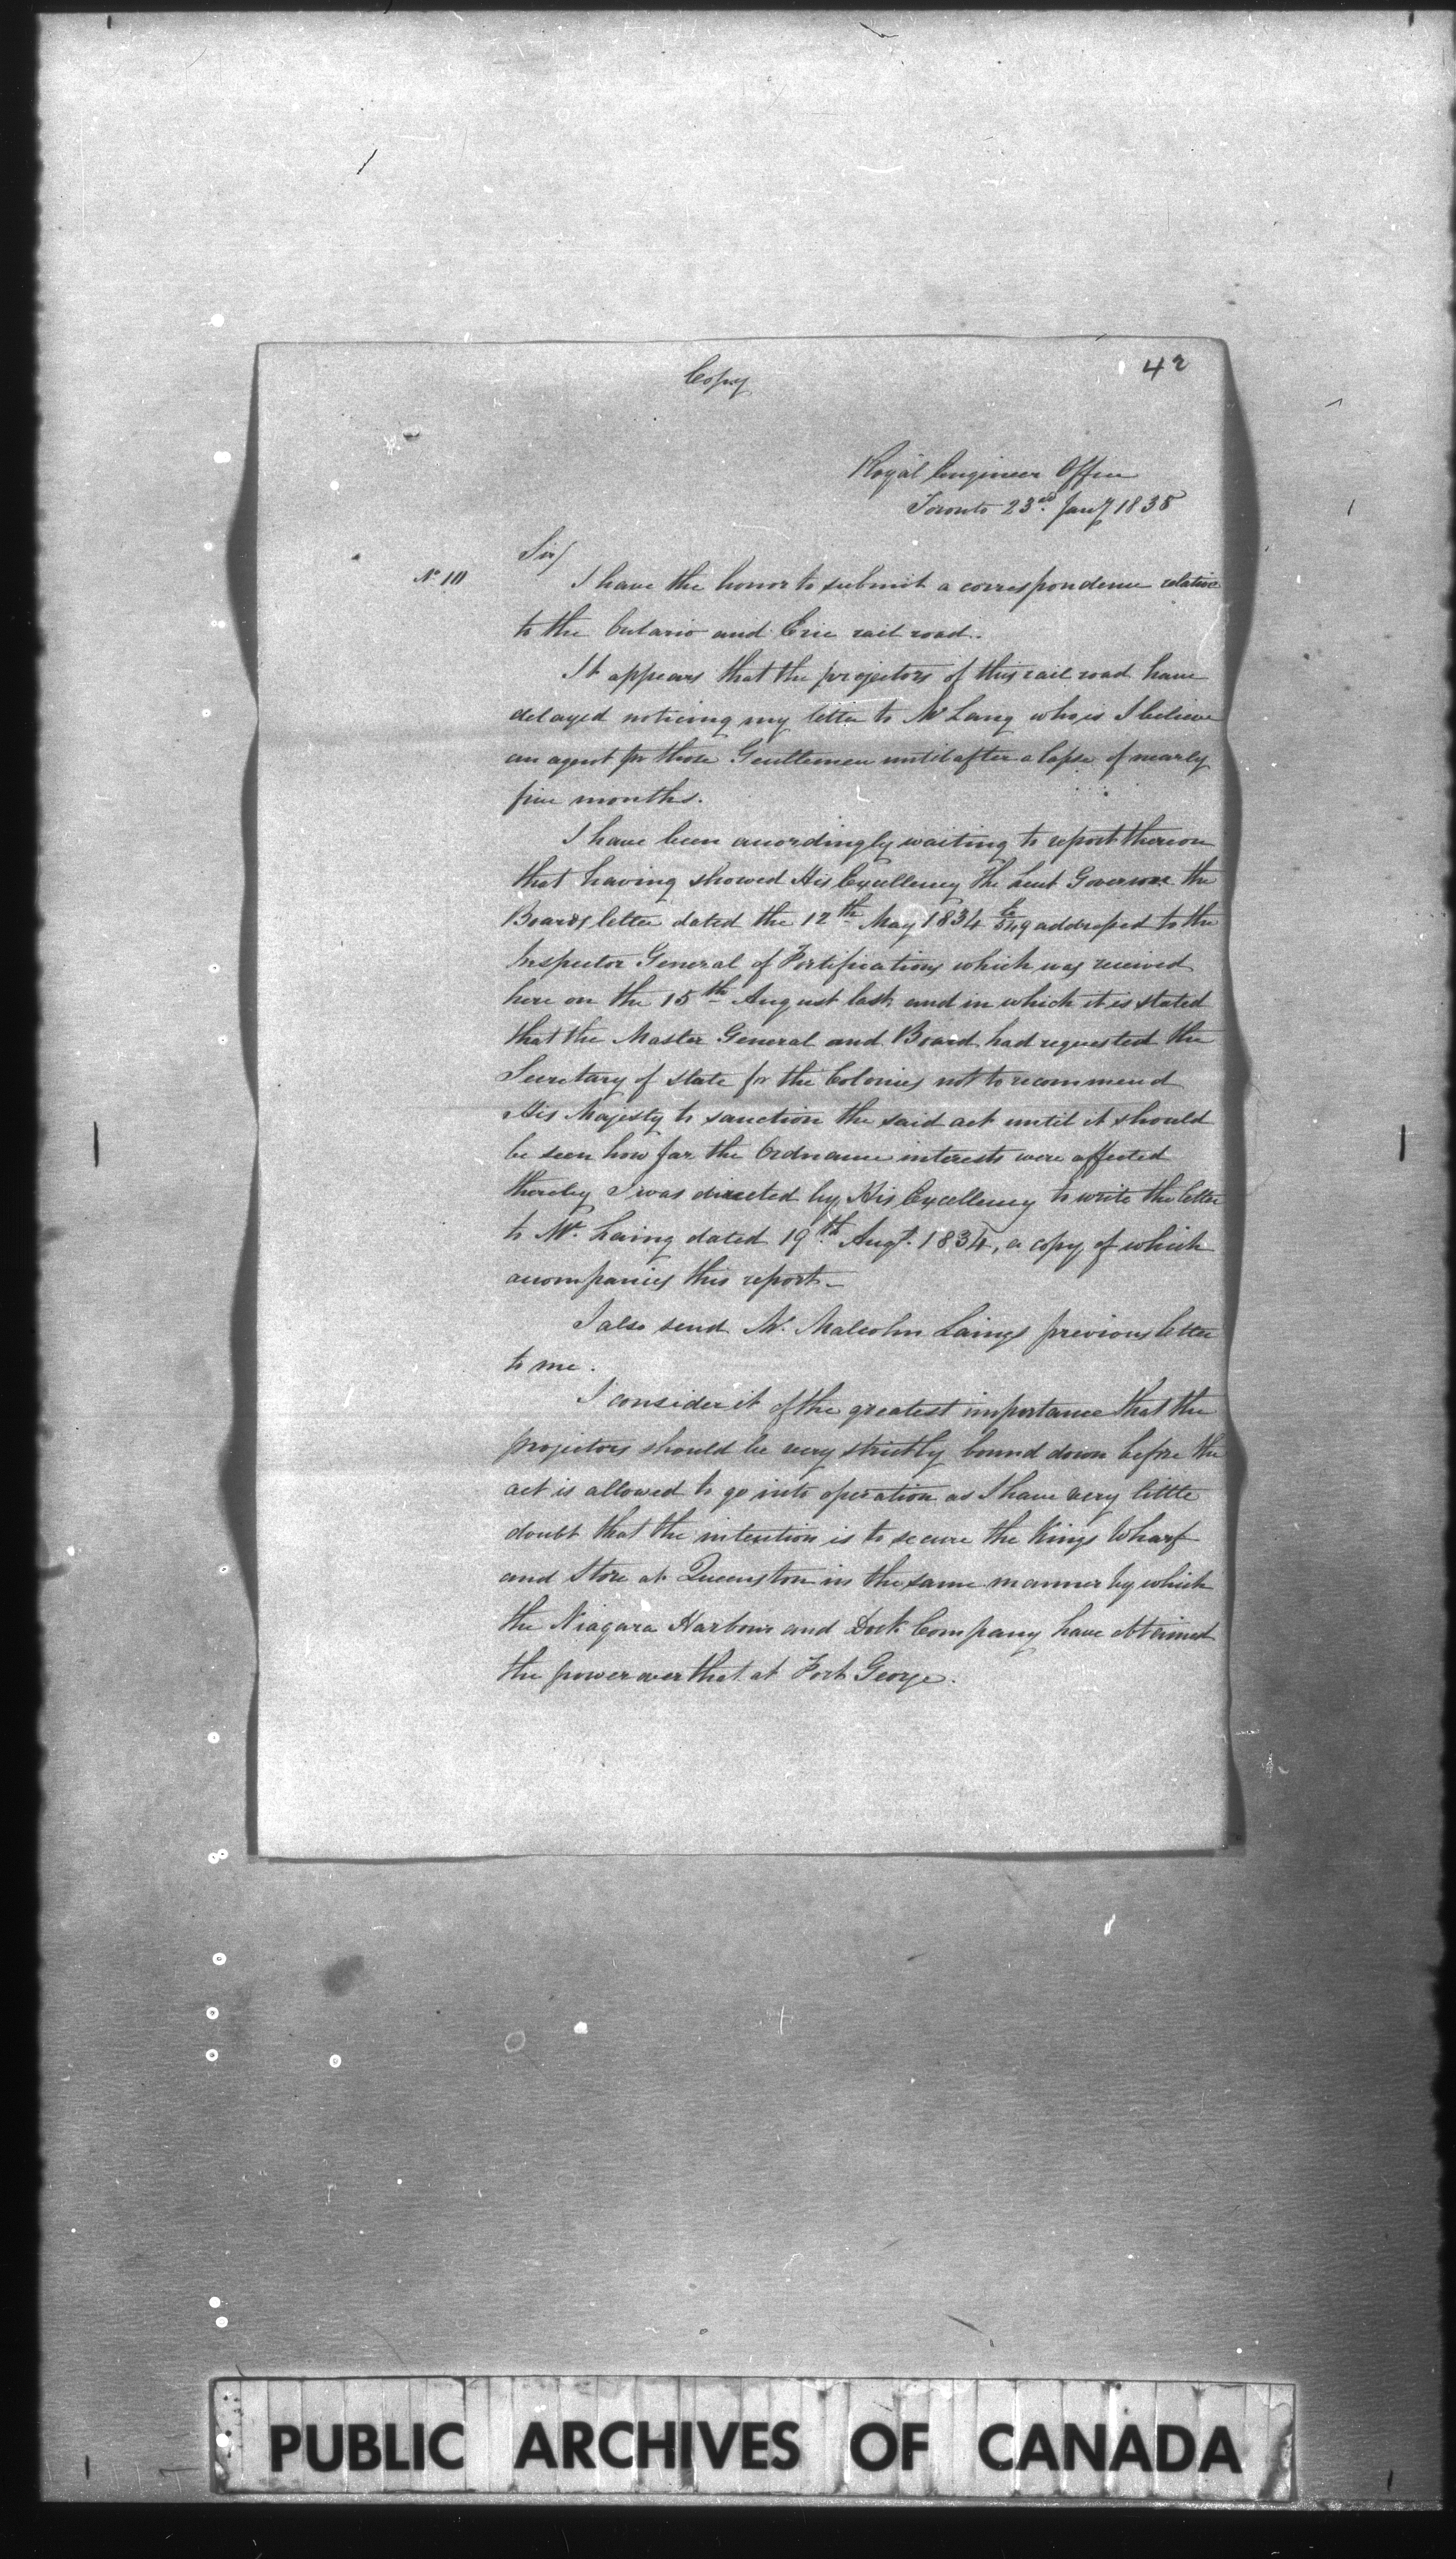 Copy
42
Royal Engineer Office
Toronto 23rd Jany 1835
Sir/
No. 10
I have the honor to submit a correspondence relative
to the Ontario and Erie rail road.
It appears that the projectors of this rail road have
delayed noticing my letter to Mr Lang who is I believe
an agent for those Gentlemen until after a lapse of nearly
five months.
I have been accordingly waiting to report thereon
that having showed His Excellency The Lieut Governor the
Boards letter dated the 12th May 1834 E/549 addressed to the
Inspector General of Fortifications which was received
here on the 15th August last, and in which it is stated
that the Master General and Board had requested the
Secretary of State for the Colonies not to recommend
His Majesty to sanction the said act until it should
be seen how far the Ordnance interests were affected
thereby I was directed by His Excellency to write the letter
to Mr. Laing dated 19th Augt. 1834, a copy of which
accompanies this report.
I also send Mr. Malcolm Laings previous letter
to me.
I consider it of the greatest importance that the
projectors should be very strictly bound down before the
act is allowed to go into operation as I have very little
doubt that the intention is to secure the Kings Wharf
and Store at Queenston in the same manner by which
the Niagara Harbour and Dock Company have obtained
the power over that at Fort George.
PUBLIC ARCHIVES OF CANADA